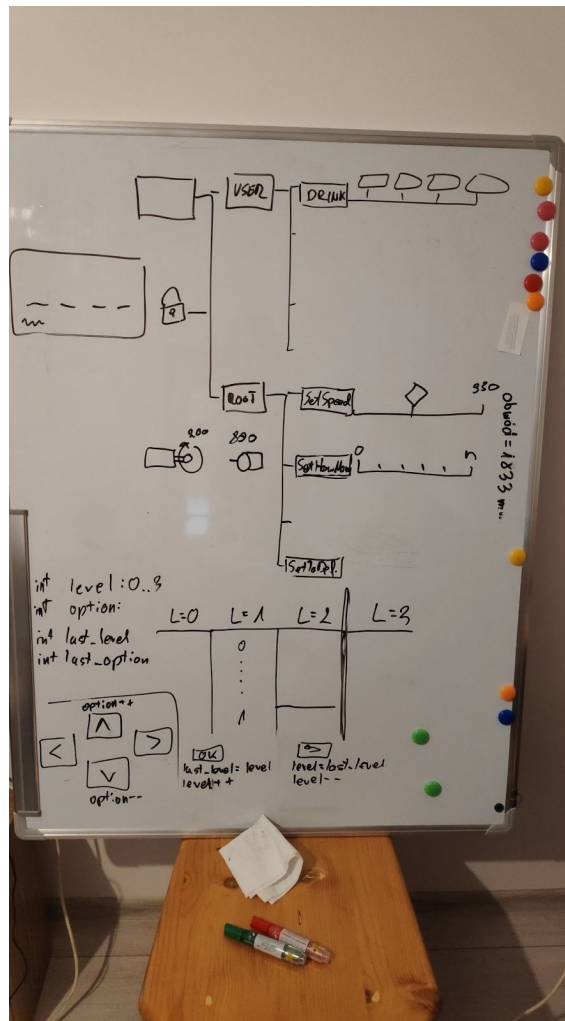 USER
DRINK
ROOT
SetSpeed
330
200
890
SetHowMany
0
5
SetToDef.
obwód = 1833 m
int level: 0..3
int option:
int last_level
int last_option
L=0 L=1 L=2 L=3
0
1
option++
<
>
option--
OK
last_level = level
level++
level=last_level
level--